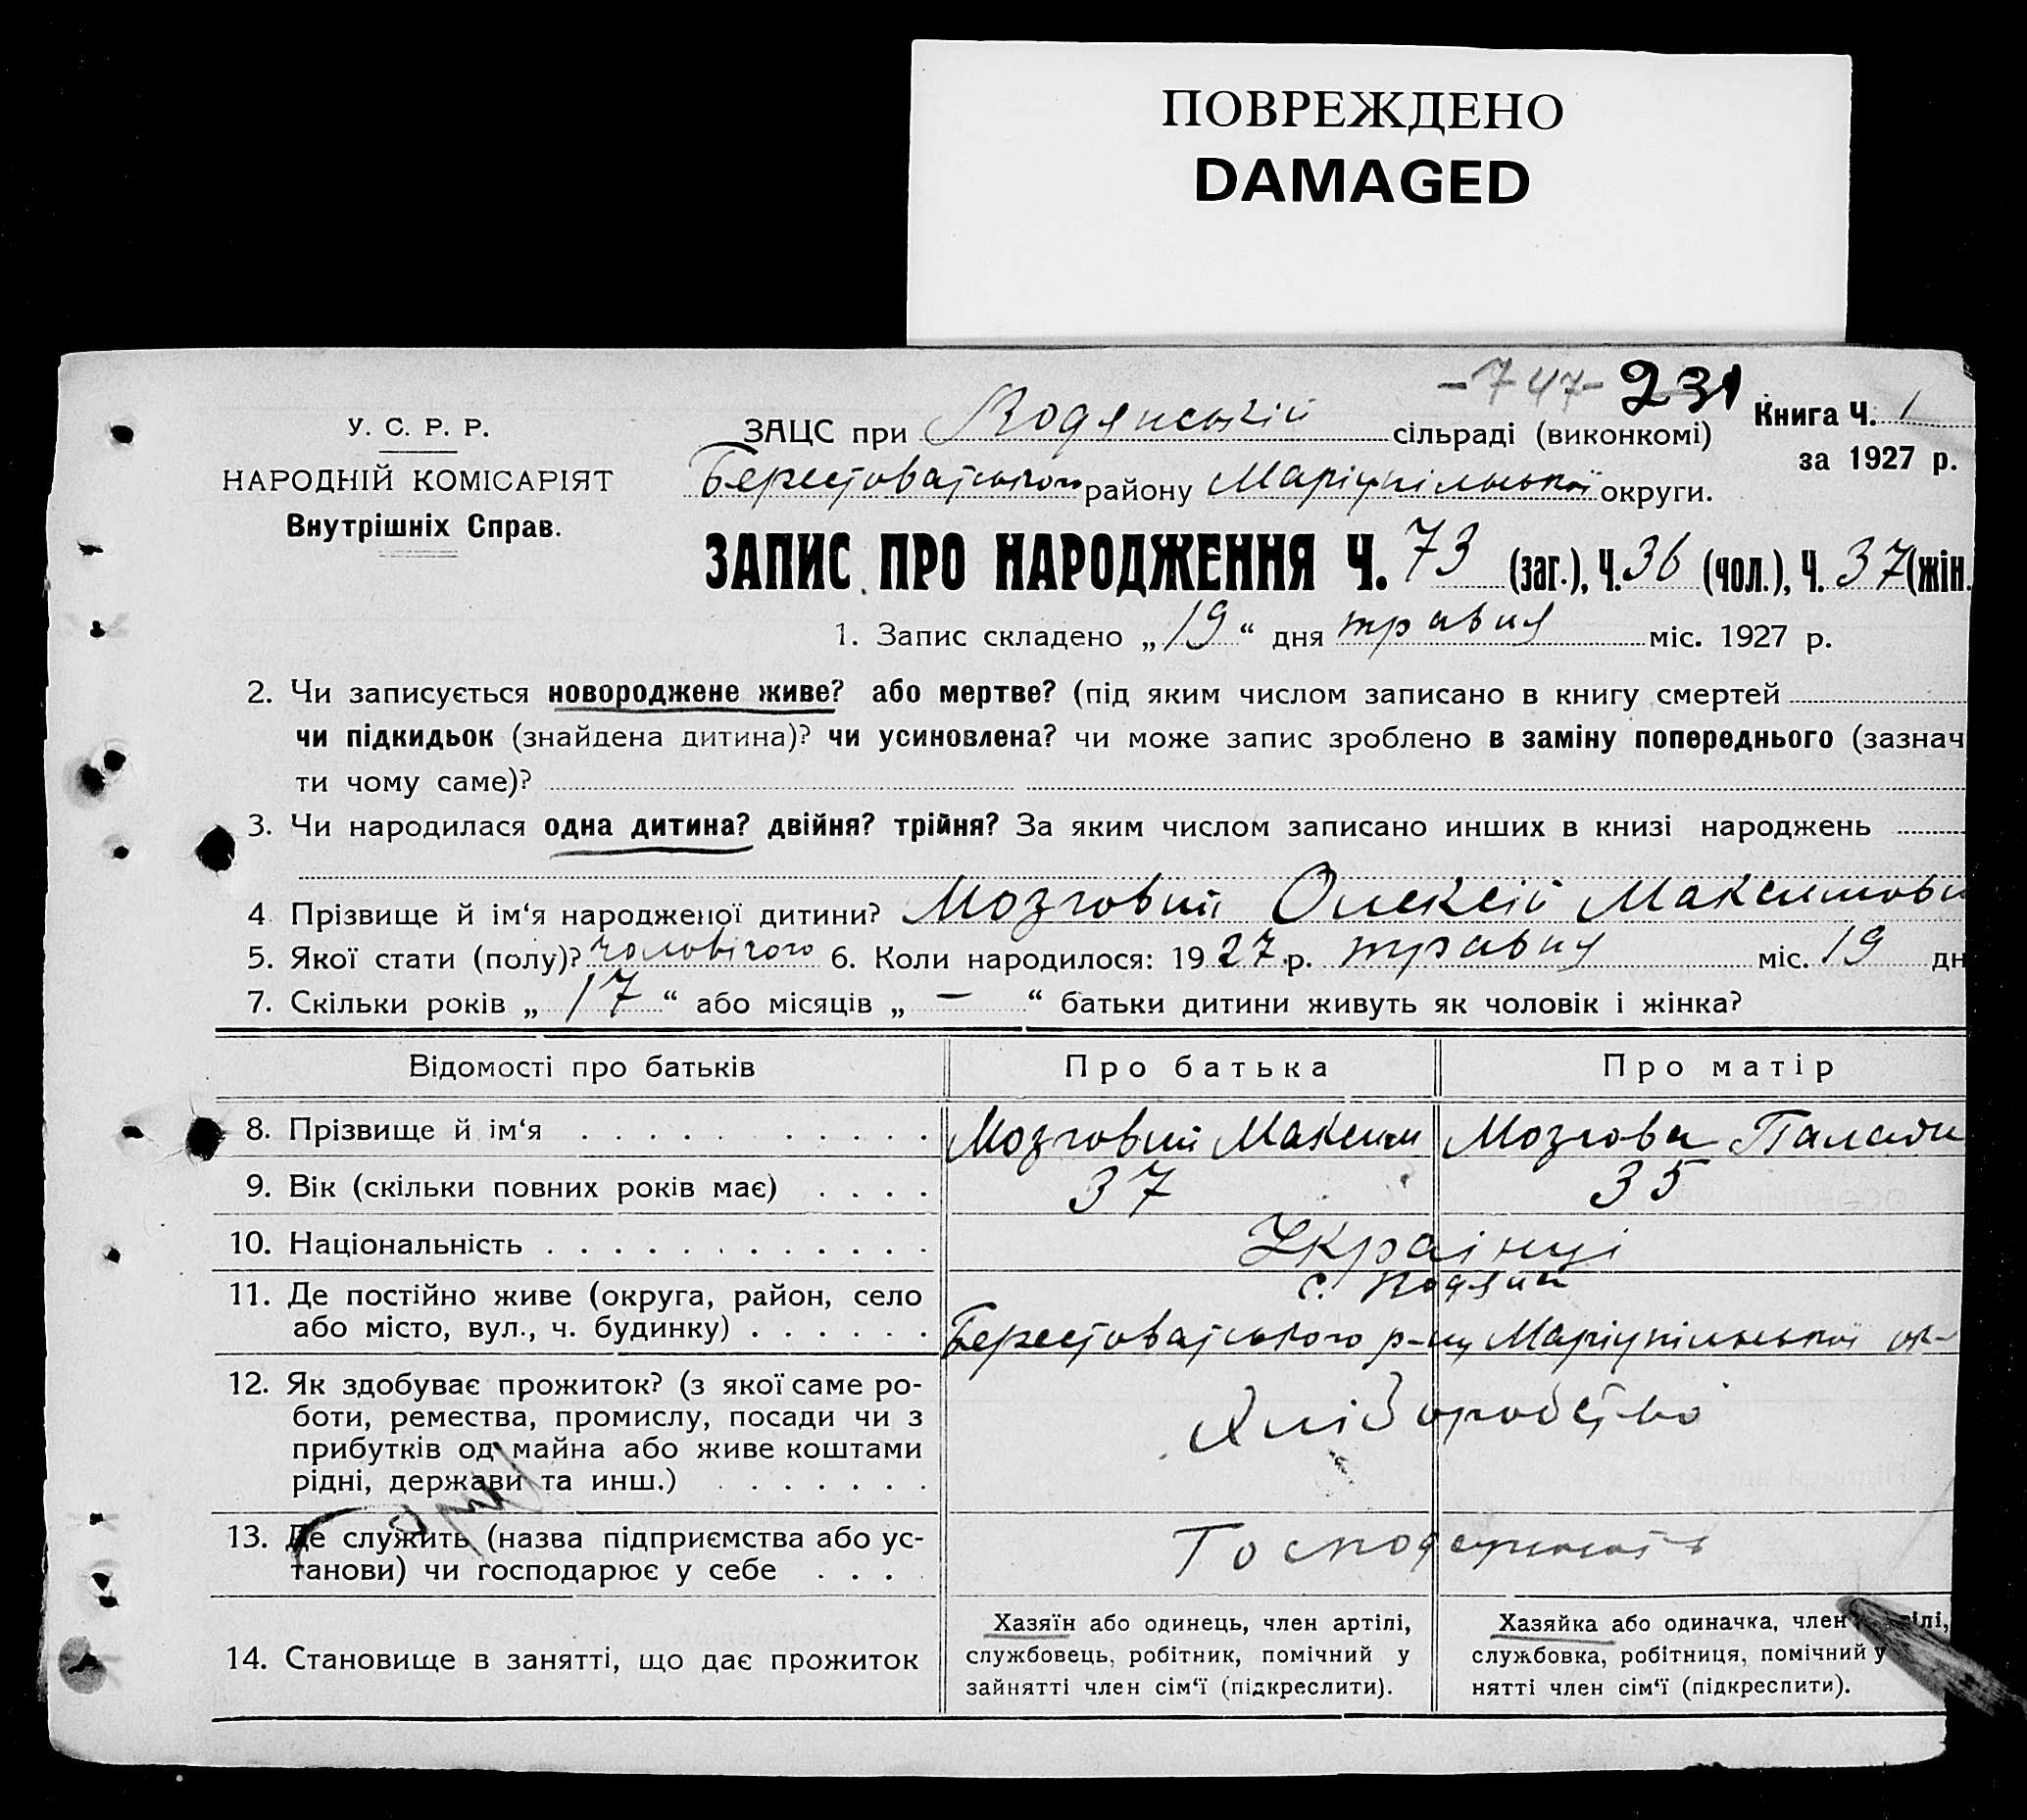 ПОВРЕЖДЕНО
DAMAGED
-747- 231
У. С. Р. Р.
НАРОДНІЙ КОМІСАРІЯТ
Внутрішніх Справ.
ЗАЦС при Водянській сільраді (виконкомі) Книга Ч. 1
за 1927 р.
Берестоватського району Маріупільської округи.
ЗАПИС ПРО НАРОДЖЕННЯ Ч. 73 (заг.), Ч. 36 (чол.), Ч. 37 (жін.
1. Запис складено „ 19 “ дня травня міс. 1927 р.
2. Чи записується новороджене живе? або мертве? (під яким числом записано в книгу смертей
чи підкидьок (знайдена дитина)? чи усиновлена? чи може запис зроблено в заміну попереднього (зазнач
ти чому саме)?
3. Чи народилася одна дитина? двійня? трійня? За яким числом записано инших в книзі народжень
4 Прізвище й ім‘я народженої дитини? Мозговий Олексій Максимови
5. Якої стати (полу)? чоловічого 6. Коли народилося: 1927 р. травня міс. 19 дн
7. Скільки років „ 17 “ або місяців „ — “ батьки дитини живуть як чоловік і жінка?
Відомості про батьків Про батька Про матір
8. Прізвище й ім‘я Мозговий Максим Мозгова
9. Вік (скільки повних років має) 37 35
10. Національність Українці
11. Де постійно живе (округа, район, село с.
або місто, вул., ч. будинку) Берестоватського р-ну Маріупільської ок-
12. Як здобуває прожиток? (з якої саме ро-
боти, ремества, промислу, посади чи з Хліборобство
прибутків од майна або живе коштами
рідні, держави та инш.)
13. Де служить (назва підприємства або ус-
танови) чи господарює у себе
14. Становище в занятті, що дає прожиток
Хазяїн або одинець, член артілі,
службовець, робітник, помічний у
зайнятті член сім‘ї (підкреслити).
Хазяйка або одиначка, член ілі,
службовка, робітниця, помічний у
нятті член сім‘ї (підкреслити).